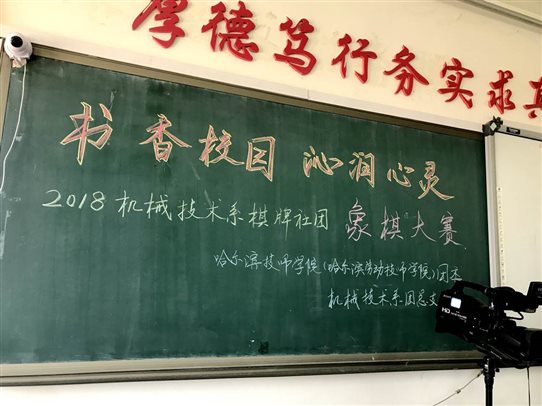 厚德笃行务实求真
书香校园 沁润心灵
2018机械技术系棋牌社团 象棋大赛
哈尔滨技师学院(哈尔滨劳动技师学院)团委
机械技术系团总支
HD